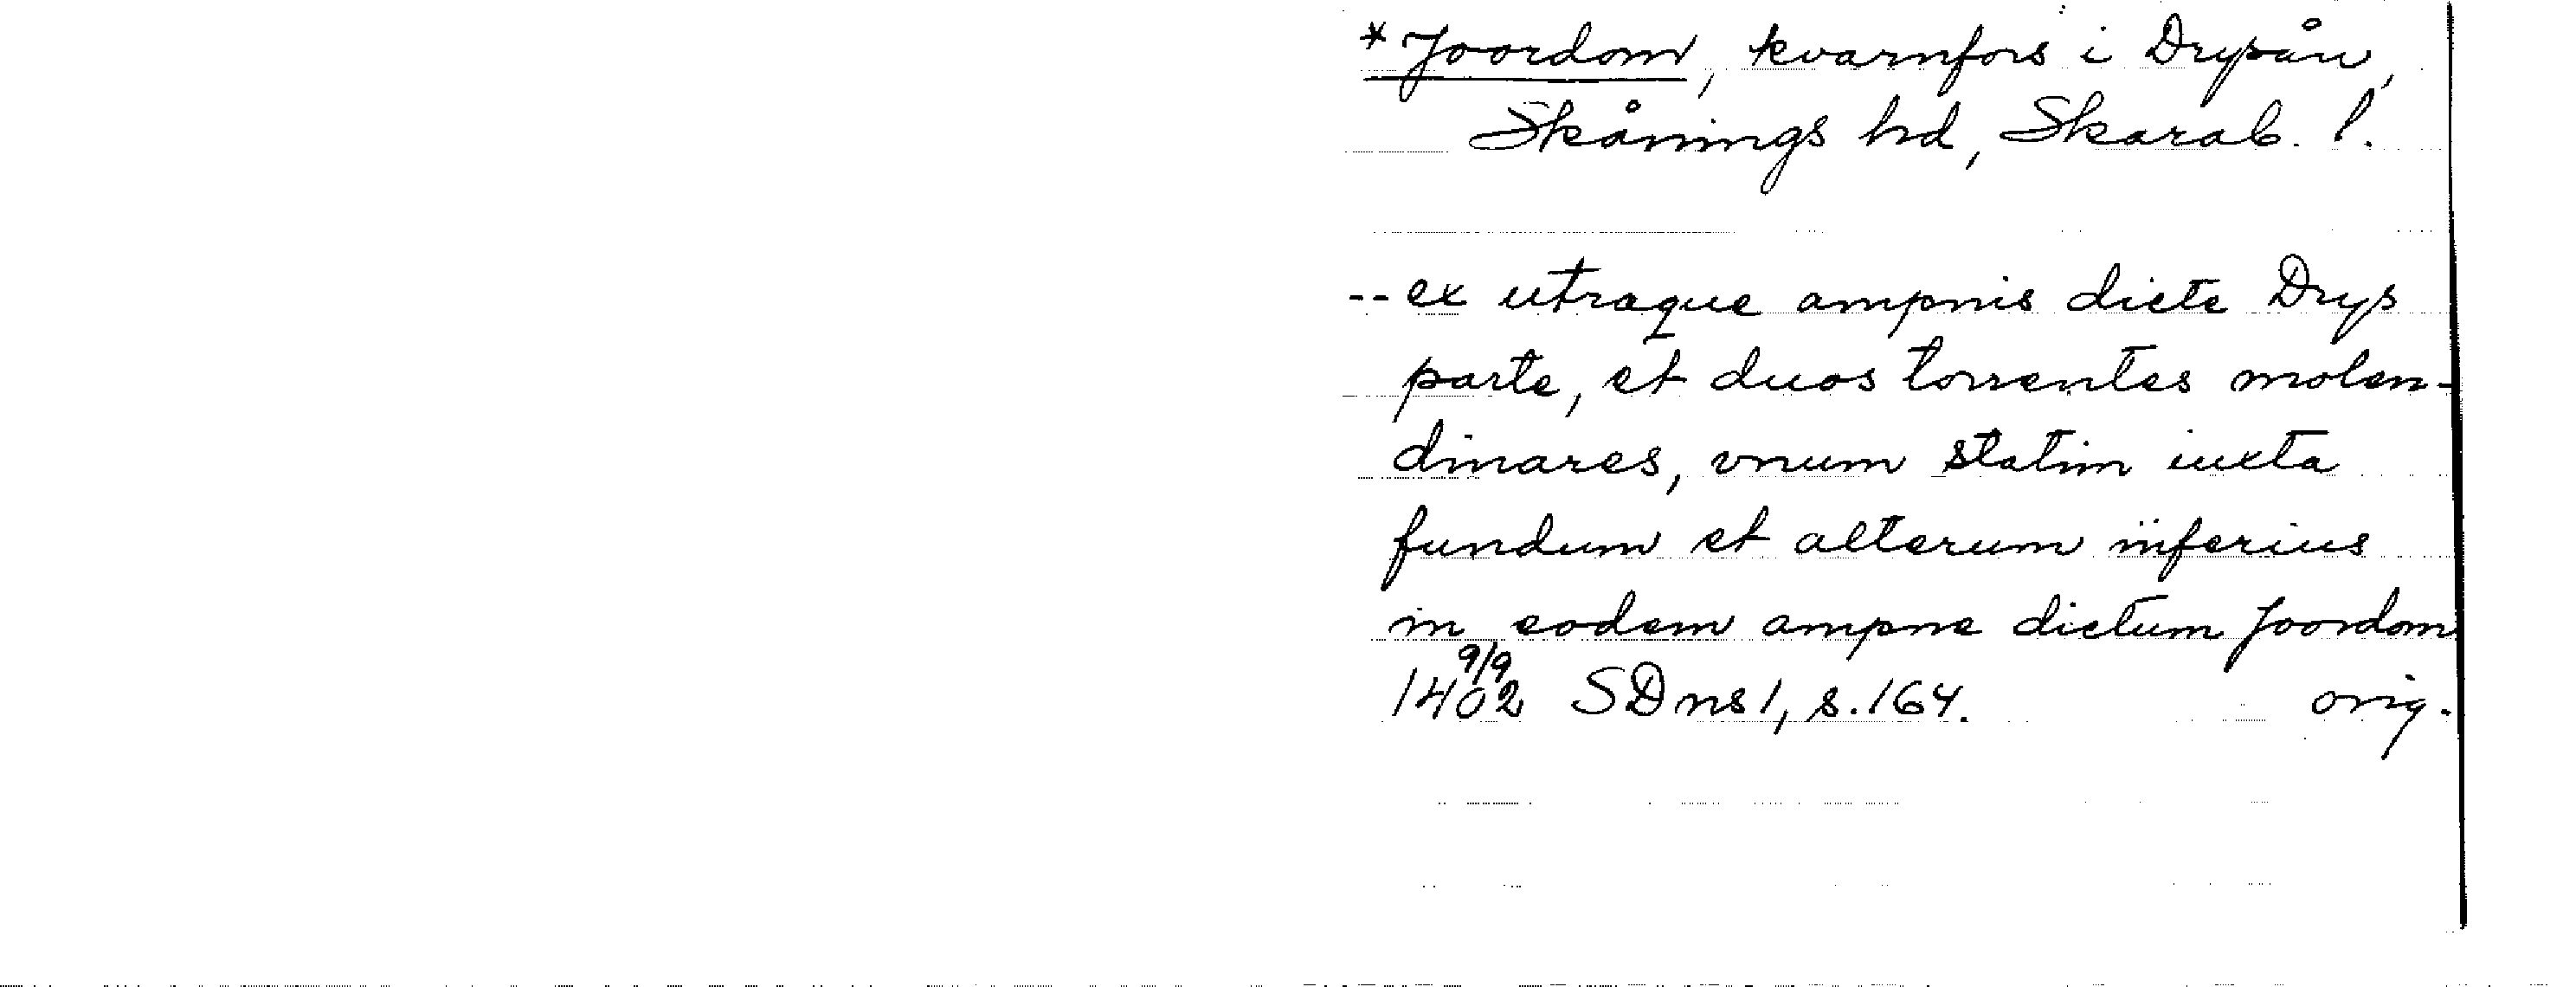 *Joordom, kvarnfors i Drysån,
Skånings hd, Skarab. l.
-- ex utraque ampnis dicte Drys
parte, et duos torrentes molen-
dinares, vnum statim iuxta
fundum et alterum inferius
in eodem ampne dictum Joordom
1402 9/9 SD ns 1, s. 164. orig.